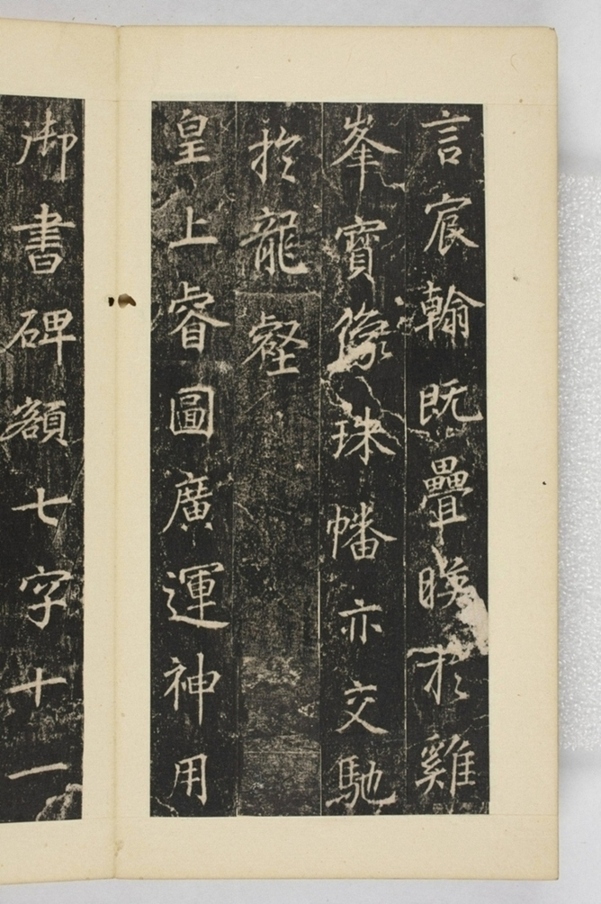 言宸翰既疊暎於雞
峯寶像珠幡亦交馳
於龍壑
皇上睿圖廣運神用
御書碑額七字十一